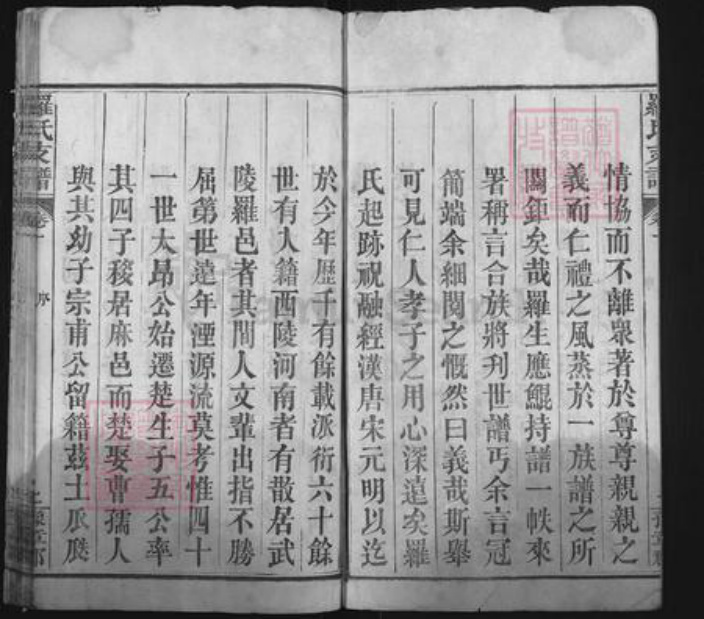 情協而不離眾著於尊尊親親之
義而仁禮之風蒸於一族譜之所
關鉅矣哉羅生應鯤持譜一帙來
署稱言合族將刋世譜丐余言冠
簡端余細閱之慨然曰義哉斯舉
可見仁人孝子之用心深遠矣羅
氏起跡祝融經漢唐宋元明以迄
於今年歷千有餘載派衍六十餘
世有入籍西陵河南者有散居武
陵羅邑者其間人文輩出指不勝
屈第世遠年湮源流莫考惟四十
一世大昂公始遷楚生子五公率
其四子移居麻邑而楚娶曹孺人
與其幼子宗甫公留籍茲土瓜瓞
羅氏支譜 卷一 序
羅氏支譜